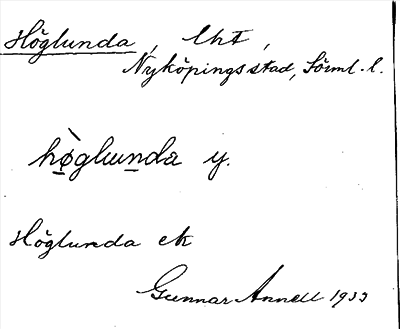 Höglunda, lht,
Nyköpings stad, Sörml. l.
hø̱̀glun̲da y.
Höglunda ek
Gunnar Annell 1933